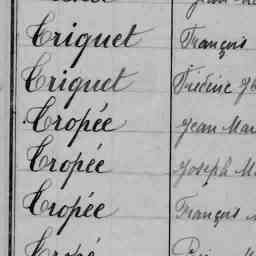 Criquet François
Criquet Frédéric
Cropée Jean Mar
Cropée Joseph M
Cropée François